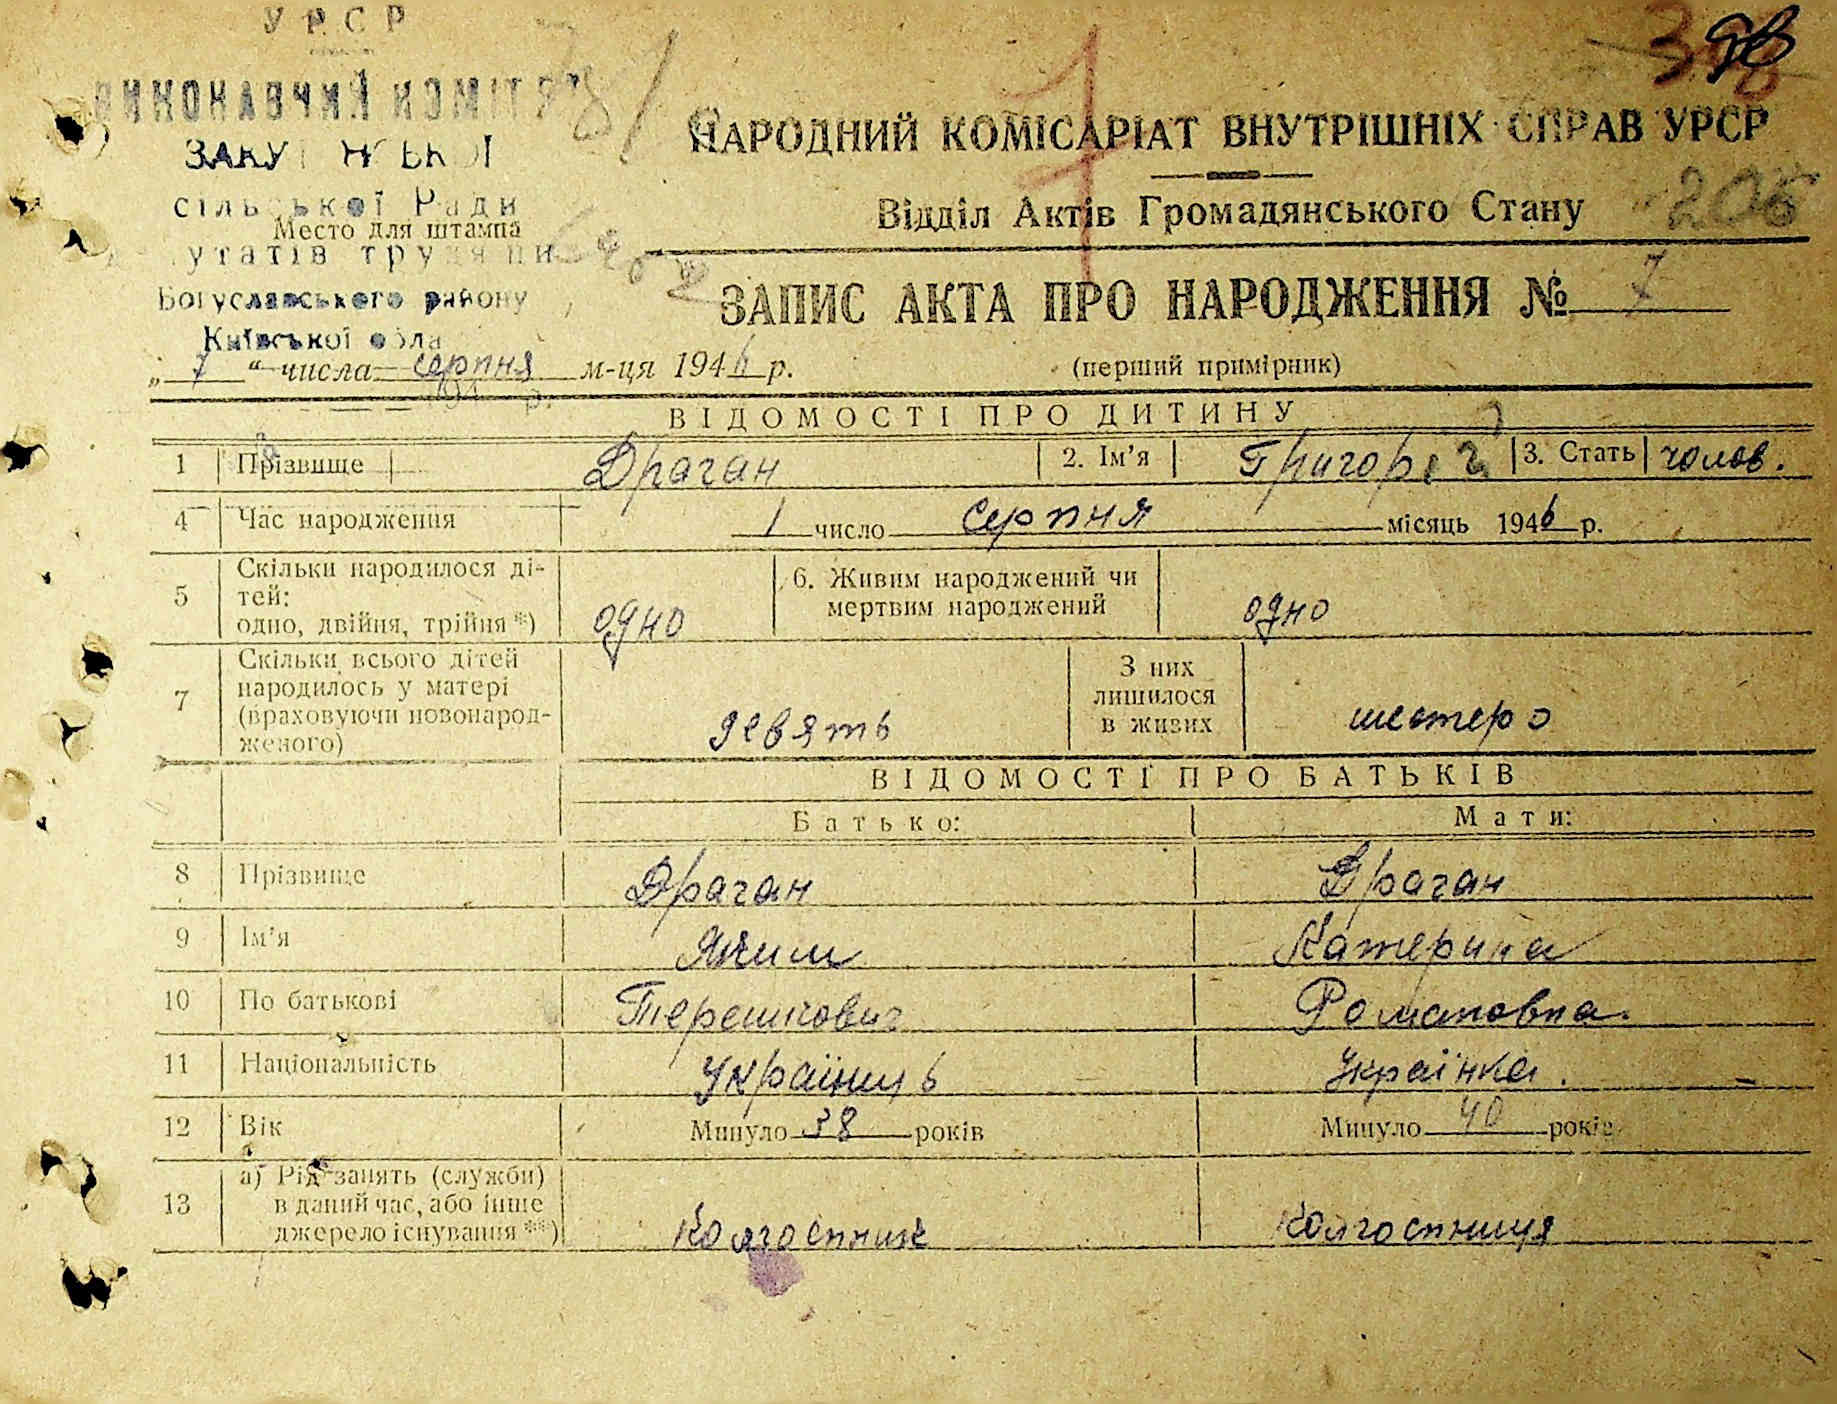 УРСР
ВИКОНАВЧИЙ КОМІТЕТ
сільської Ради
Место для штампа
Богуславського району
Київської обла
98
НАРОДНИЙ КОМІСАРІАТ ВНУТРІШНІХ СПРАВ УРСР
206
Відділ Актів Громадянського Стану
ЗАПИС АКТА ПРО НАРОДЖЕННЯ № 7
„ 7 “ числа серпня м-ця 1946 р.
(перший примірник)
ВІДОМОСТІ ПРО ДИТИНУ
1 Прізвище Драган 2. Ім’я Григорій 3. Стать чолов.
4 Час народження 1 число серпня місяць 1946 р.
5 Скільки народилося ді-
тей:
одно, двійня, трійня *) одно
6. Живим народжений чи
мертвим народжений одно
7 Скільки всього дітей
народилось у матері
(враховуючи новонарод-
женого) девять
З них
лишилося
в живих шестеро
ВІДОМОСТІ ПРО БАТЬКІВ
Батько: Мати:
8 Прізвище Драган Драган
9 Ім’я Яким Катерина
10 По батькові Терешкович Романовна.
11 Національність Українць Українка.
12 Вік Минуло 38 років Минуло 40 років
13 а) Рід занять (служби)
в даний час, або інше
джерело існування **) Колгоспник Колгоспниця